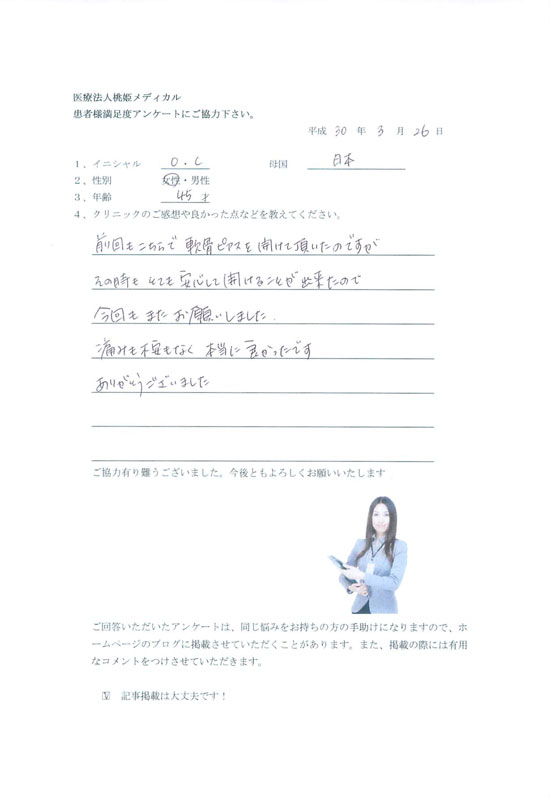 医療法人桃姫メディカル
患者様満足度アンケートにご協力下さい。
平成 30 年 3 月 26 日
1、イニシャル O.C 母国 日本
2、性別 女性・男性
3、年齢 45才
4、クリニックのご感想や良かった点などを教えてください。
前回もこちらで 軟骨ピアスを開けて頂いたのですが
その時も とても 安心して開けることが出来たので
今回も また お願いしました.
痛みも 不安もなく 本当に 良かったです
ありがとうございました
ご協力有り難うございました。今後ともよろしくお願いいたします
ご回答いただいたアンケートは、同じ悩みをお持ちの方の手助けになりますので、ホ
ームページのブログに掲載させていただくことがあります。また、掲載の際には有用
なコメントをつけさせていただきます。
☑ 記事掲載は大丈夫です！